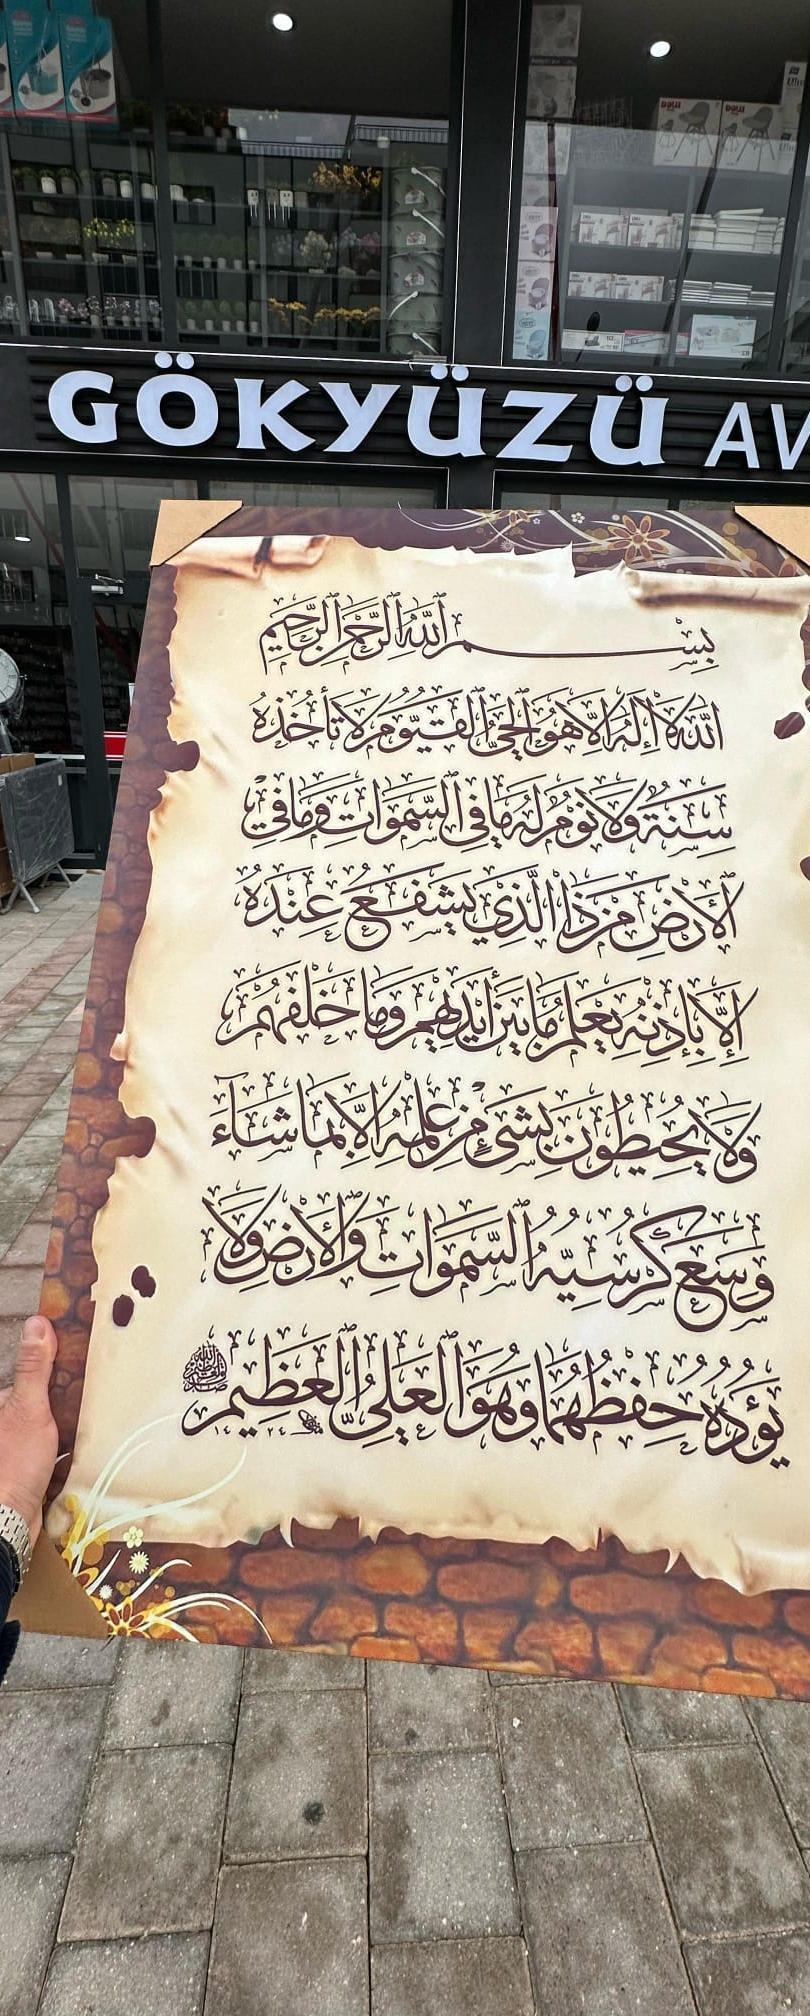 GÖKYÜZÜ AV
بِسْمِ اللّٰهِ الرَّحْمٰنِ الرَّحِيمِ
اَللّٰهُ لَا اِلٰهَ اِلَّا هُوَ الْحَيُّ الْقَيُّومُ لَا تَأْخُذُهُ
سِنَةٌ وَلَا نَوْمٌ لَهُ مَا فِي السَّمٰوَاتِ وَمَا فِي
الْاَرْضِ مَنْ ذَا الَّذِي يَشْفَعُ عِنْدَهُ
اِلَّا بِاِذْنِهِ يَعْلَمُ مَا بَيْنَ اَيْدِيهِمْ وَمَا خَلْفَهُمْ
وَلَا يُحِيطُونَ بِشَيْءٍ مِنْ عِلْمِهِ اِلَّا بِمَا شَاءَ
وَسِعَ كُرْسِيُّهُ السَّمٰوَاتِ وَالْاَرْضَ وَلَا
يَؤُدُهُ حِفْظُهُمَا وَهُوَ الْعَلِيُّ الْعَظِيمُ